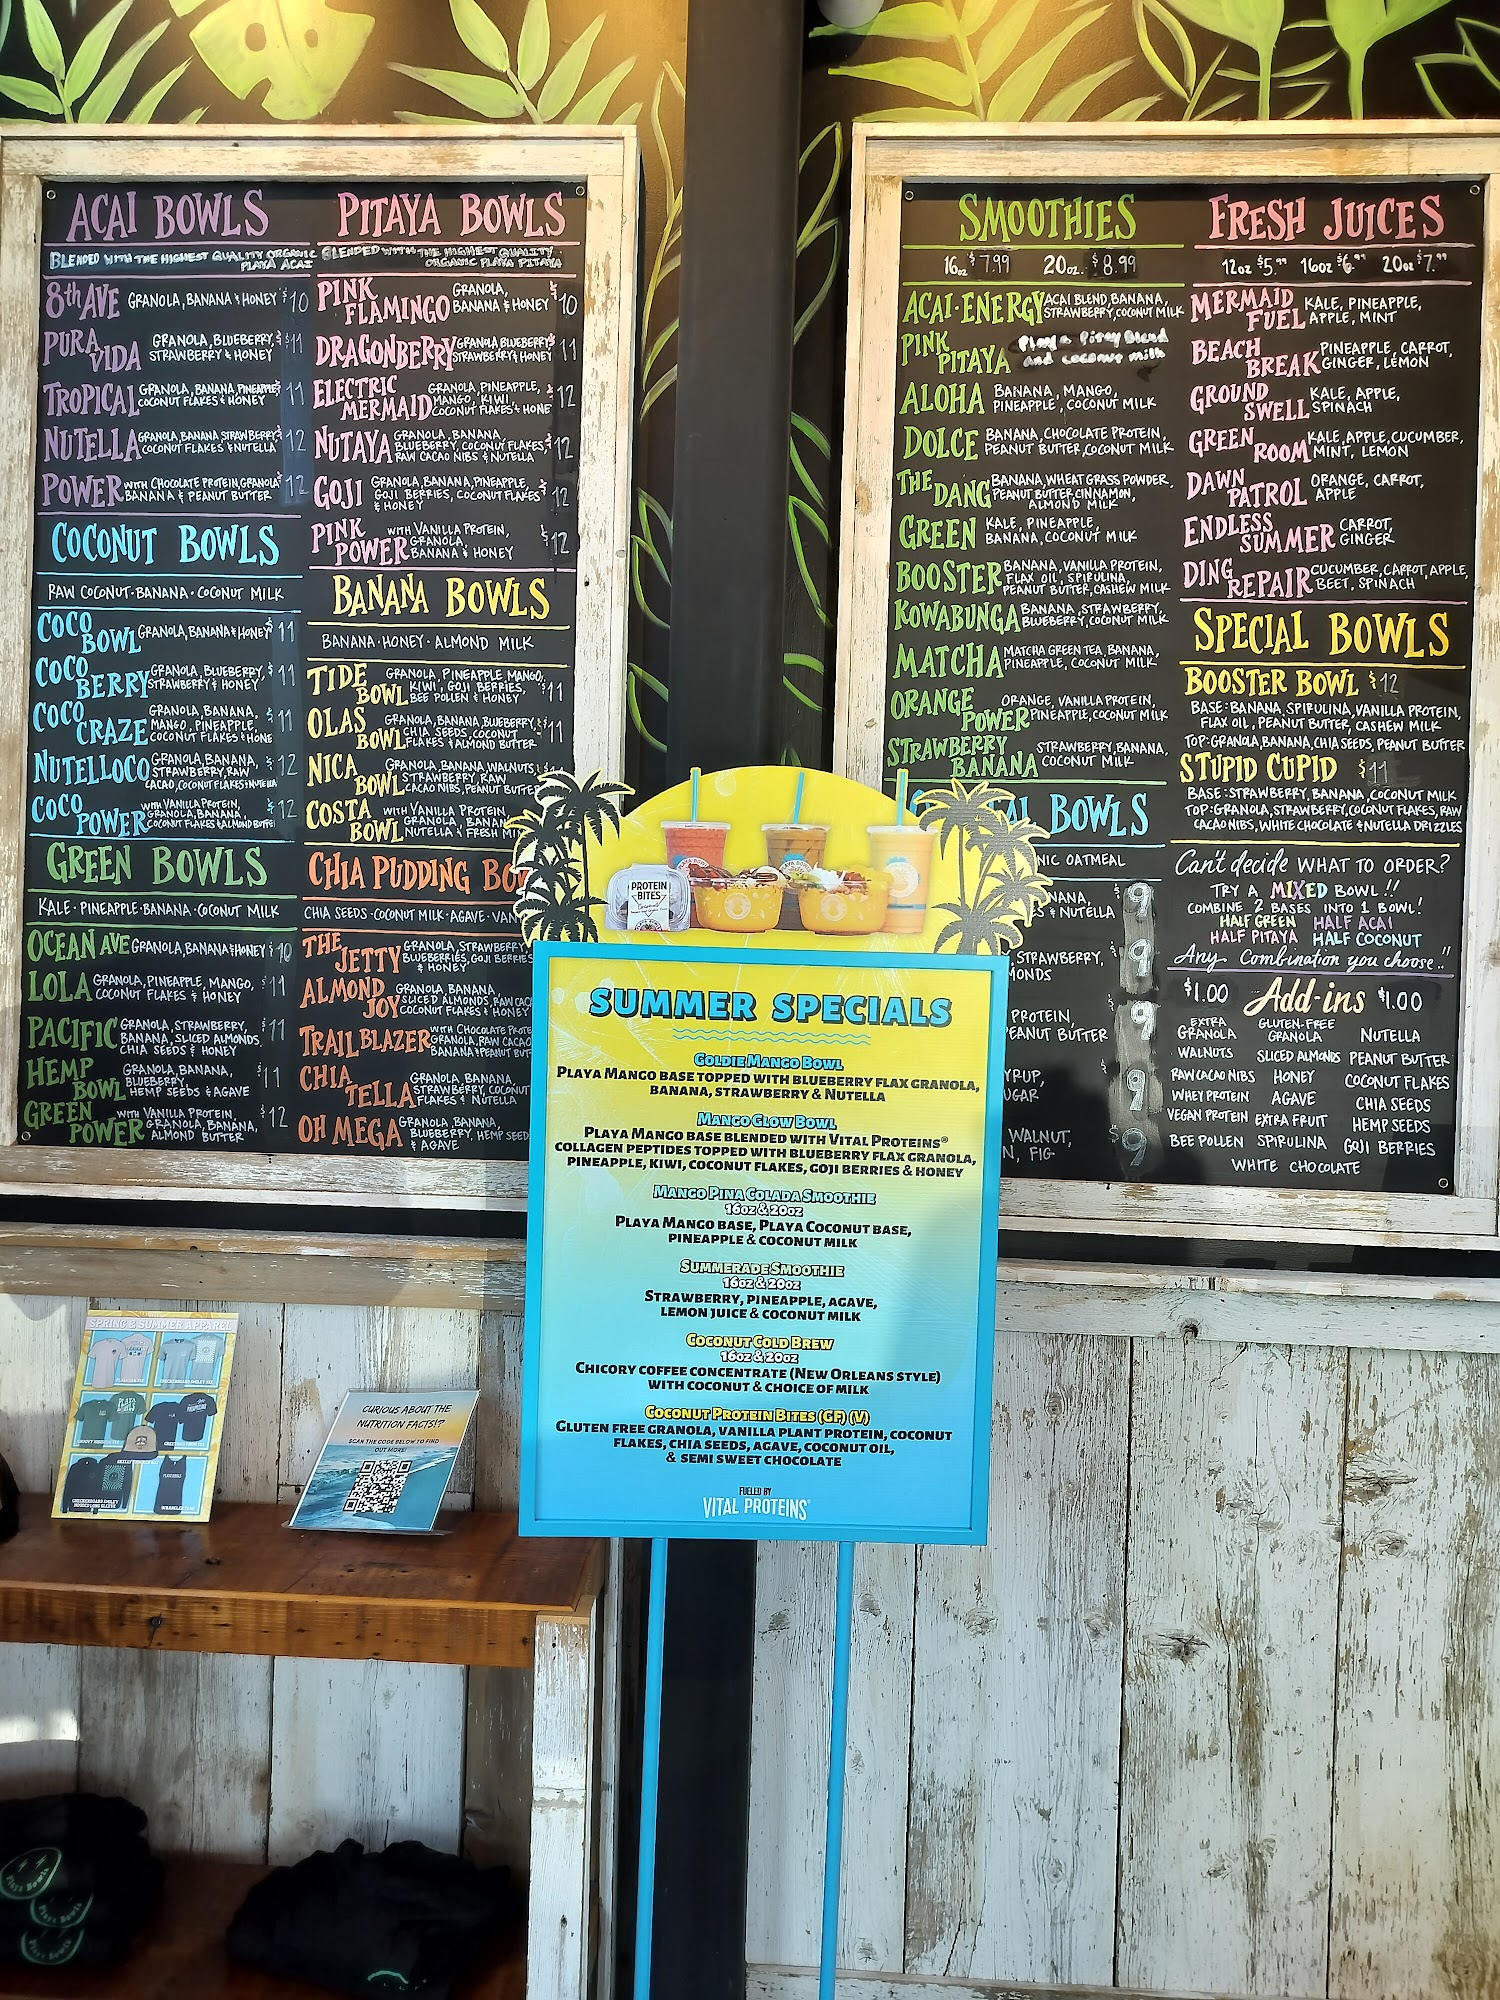 ACAI BOWLS
BLENDED WITH THE HIGHEST QUALITY ORGANIC
PLAYA ACAI
8th AVE GRANOLA, BANANA & HONEY $10
PURA VIDA GRANOLA, BLUEBERRY, $11
STRAWBERRY & HONEY
TROPICAL GRANOLA, BANANA, PINEAPPLE, $11
COCONUT FLAKES & HONEY
NUTELLA GRANOLA, BANANA, STRAWBERRY, $12
COCONUT FLAKES & NUTELLA
POWER WITH CHOCOLATE PROTEIN, GRANOLA $12
BANANA & PEANUT BUTTER
COCONUT BOWLS
RAW COCONUT · BANANA · COCONUT MILK
COCO BOWL GRANOLA, BANANA & HONEY $11
COCO BERRY GRANOLA, BLUEBERRY, $11
STRAWBERRY & HONEY
COCO CRAZE GRANOLA, BANANA, $11
MANGO, PINEAPPLE,
COCONUT FLAKES & HONE
NUTELLOCO GRANOLA, BANANA, $12
STRAWBERRY, RAW
CACAO, COCONUT FLAKES & NUTELLA
COCO POWER WITH VANILLA PROTEIN, $12
GRANOLA, BANANA,
COCONUT FLAKES & ALMOND BUTTER
GREEN BOWLS
KALE · PINEAPPLE · BANANA · COCONUT MILK
OCEAN AVE GRANOLA, BANANA & HONEY $10
LOLA GRANOLA, PINEAPPLE, MANGO, $11
COCONUT FLAKES & HONEY
PACIFIC GRANOLA, STRAWBERRY, $11
BANANA, SLICED ALMONDS,
CHIA SEEDS & HONEY
HEMP BOWL GRANOLA, BANANA, $11
BLUEBERRY,
HEMP SEEDS & AGAVE
GREEN POWER WITH VANILLA PROTEIN, $12
GRANOLA, BANANA,
ALMOND BUTTER
PITAYA BOWLS
BLENDED WITH THE HIGHEST QUALITY
ORGANIC PLAYA PITAYA
PINK FLAMINGO GRANOLA, $10
BANANA & HONEY
DRAGONBERRY GRANOLA, BLUEBERRY, $11
STRAWBERRY & HONEY
ELECTRIC MERMAID GRANOLA, PINEAPPLE, $12
MANGO, KIWI,
COCONUT FLAKES & HONE
NUTAYA GRANOLA, BANANA, $12
BLUEBERRY, COCONUT FLAKES,
RAW CACAO NIBS & NUTELLA
GOJI GRANOLA, BANANA, PINEAPPLE, $12
GOJI BERRIES, COCONUT FLAKES
& HONEY
PINK POWER WITH VANILLA PROTEIN, $12
GRANOLA,
BANANA & HONEY
BANANA BOWLS
BANANA · HONEY · ALMOND MILK
TIDE BOWL GRANOLA, PINEAPPLE, MANGO, $11
KIWI, GOJI BERRIES,
BEE POLLEN & HONEY
OLAS BOWL GRANOLA, BANANA, BLUEBERRY, $11
CHIA SEEDS, COCONUT
FLAKES & ALMOND BUTTER
NICA BOWL GRANOLA, BANANA, WALNUTS,
STRAWBERRY, RAW
CACAO NIBS, PEANUT BUTTE
COSTA BOWL WITH VANILLA PROTEIN
GRANOLA, BANAN
NUTELLA & FRESH MI
CHIA PUDDING BO
CHIA SEEDS · COCONUT MILK · AGAVE · VAN
THE JETTY GRANOLA, STRAWBERRY
BLUEBERRIES, GOJI BERRIES
& HONEY
ALMOND JOY GRANOLA, BANANA,
SLICED ALMONDS, RAW CAC
COCONUT FLAKES & HONEY
TRAIL BLAZER WITH CHOCOLATE PROTE
GRANOLA, RAW CACAO
BANANA & PEANUT BUT
CHIA TELLA GRANOLA, BANANA,
STRAWBERRY, COCONUT
FLAKES & NUTELLA
OH MEGA GRANOLA, BANANA,
BLUEBERRY, HEMP SEED
& AGAVE
SMOOTHIES
16oz $7.99 20oz. $8.99
ACAI·ENERGY ACAI BLEND, BANANA,
STRAWBERRY, COCONUT MILK
PINK PITAYA Playa Pitay Blend
and coconut milk
ALOHA BANANA, MANGO,
PINEAPPLE, COCONUT MILK
DOLCE BANANA, CHOCOLATE PROTEIN,
PEANUT BUTTER, COCONUT MILK
THE DANG BANANA, WHEAT GRASS POWDER,
PEANUT BUTTER, CINNAMON,
ALMOND MILK
GREEN KALE, PINEAPPLE,
BANANA, COCONUT MILK
BOOSTER BANANA, VANILLA PROTEIN,
FLAX OIL, SPIRULINA,
PEANUT BUTTER, CASHEW MILK
KOWABUNGA BANANA, STRAWBERRY,
BLUEBERRY, COCONUT MILK
MATCHA MATCHA GREEN TEA, BANANA,
PINEAPPLE, COCONUT MILK
ORANGE POWER ORANGE, VANILLA PROTEIN,
PINEAPPLE, COCONUT MILK
STRAWBERRY BANANA STRAWBERRY, BANANA,
COCONUT MILK
AL BOWLS
NIC OATMEAL
NANA, $9
S & NUTELLA
STRAWBERRY, $9
MONDS
PROTEIN, $9
PEANUT BUTTER
YRUP, $9
UGAR
WALNUT, $9
N, FIG
FRESH JUICES
12oz $5.99 16oz $6.99 20oz $7.99
MERMAID FUEL KALE, PINEAPPLE,
APPLE, MINT
BEACH BREAK PINEAPPLE, CARROT,
GINGER, LEMON
GROUND SWELL KALE, APPLE,
SPINACH
GREEN ROOM KALE, APPLE, CUCUMBER,
MINT, LEMON
DAWN PATROL ORANGE, CARROT,
APPLE
ENDLESS SUMMER CARROT,
GINGER
DING REPAIR CUCUMBER, CARROT, APPLE,
BEET, SPINACH
SPECIAL BOWLS
BOOSTER BOWL $12
BASE: BANANA, SPIRULINA, VANILLA PROTEIN,
FLAX OIL, PEANUT BUTTER, CASHEW MILK
TOP: GRANOLA, BANANA, CHIA SEEDS, PEANUT BUTTER
STUPID CUPID $11
BASE: STRAWBERRY, BANANA, COCONUT MILK
TOP: GRANOLA, STRAWBERRY, COCONUT FLAKES, RAW
CACAO NIBS, WHITE CHOCOLATE & NUTELLA DRIZZLES
Can't decide WHAT TO ORDER?
TRY A MIXED BOWL!!
COMBINE 2 BASES INTO 1 BOWL!
HALF GREEN HALF ACAI
HALF PITAYA HALF COCONUT
Any Combination you choose..!!
$1.00 Add-ins $1.00
EXTRA GRANOLA GLUTEN-FREE GRANOLA NUTELLA
WALNUTS SLICED ALMONDS PEANUT BUTTER
RAW CACAO NIBS HONEY COCONUT FLAKES
WHEY PROTEIN AGAVE CHIA SEEDS
VEGAN PROTEIN EXTRA FRUIT HEMP SEEDS
BEE POLLEN SPIRULINA GOJI BERRIES
WHITE CHOCOLATE
PROTEIN
BITES
SUMMER SPECIALS
GOLDIE MANGO BOWL
PLAYA MANGO BASE TOPPED WITH BLUEBERRY FLAX GRANOLA,
BANANA, STRAWBERRY & NUTELLA
MANGO GLOW BOWL
PLAYA MANGO BASE BLENDED WITH VITAL PROTEINS®
COLLAGEN PEPTIDES TOPPED WITH BLUEBERRY FLAX GRANOLA,
PINEAPPLE, KIWI, COCONUT FLAKES, GOJI BERRIES & HONEY
MANGO PINA COLADA SMOOTHIE
16OZ & 20OZ
PLAYA MANGO BASE, PLAYA COCONUT BASE,
PINEAPPLE & COCONUT MILK
SUMMERADE SMOOTHIE
16OZ & 20OZ
STRAWBERRY, PINEAPPLE, AGAVE,
LEMON JUICE & COCONUT MILK
COCONUT COLD BREW
16OZ & 20OZ
CHICORY COFFEE CONCENTRATE (NEW ORLEANS STYLE)
WITH COCONUT & CHOICE OF MILK
COCONUT PROTEIN BITES (GF) (V)
GLUTEN FREE GRANOLA, VANILLA PLANT PROTEIN, COCONUT
FLAKES, CHIA SEEDS, AGAVE, COCONUT OIL,
& SEMI SWEET CHOCOLATE
FUELED BY
VITAL PROTEINS
SPRING & SUMMER APPAREL
CURIOUS ABOUT THE
NUTRITION FACTS!?
SCAN THE CODE BELOW TO FIND
OUT MORE!
Playa Bowls
Playa Bowls
Playa Bowls